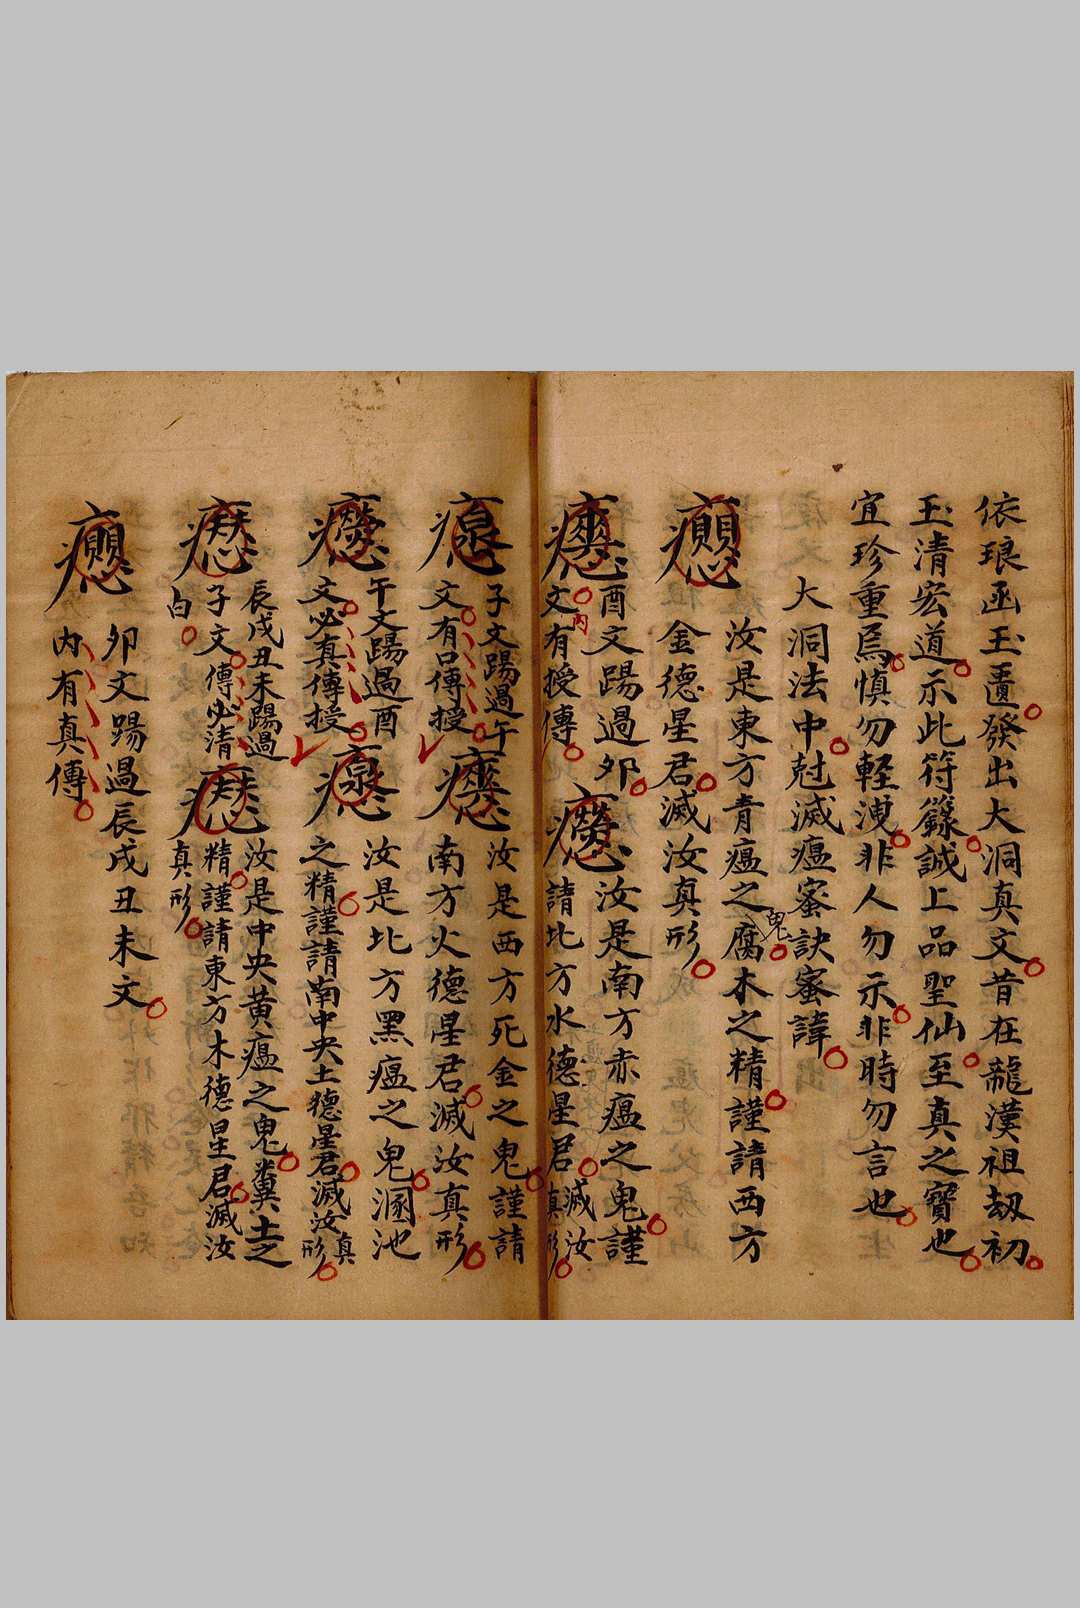 依琅函玉𧶠發出大洞真文昔在龍漢祖刼初
玉清宏道示此符籙誠上品聖仙至真之寶也
宜珍重焉慎勿輕洩非人勿示非時勿言也
大洞法中尅滅瘟蜜訣蜜諱
鬼
汝是東方青瘟之腐木之精謹請西方
金德星君滅汝真形
酉文踢過夘
文內有授傳
汝是南方赤瘟之鬼謹
請北方水德星君滅汝真形
子文踢過午
文有口傳授
汝是西方死金之鬼謹請
南方火德星君滅汝真形
午文踢過酉
文必真傳授
汝是北方黑瘟之鬼溷池
之精謹請南中央土德星君滅汝真形
辰戌丑未踢過
子文傳必清
白
汝是中央黃瘟之鬼糞土之
精謹請東方木德星君滅汝
真形
夘文踢過辰戌丑未文
內有真傳